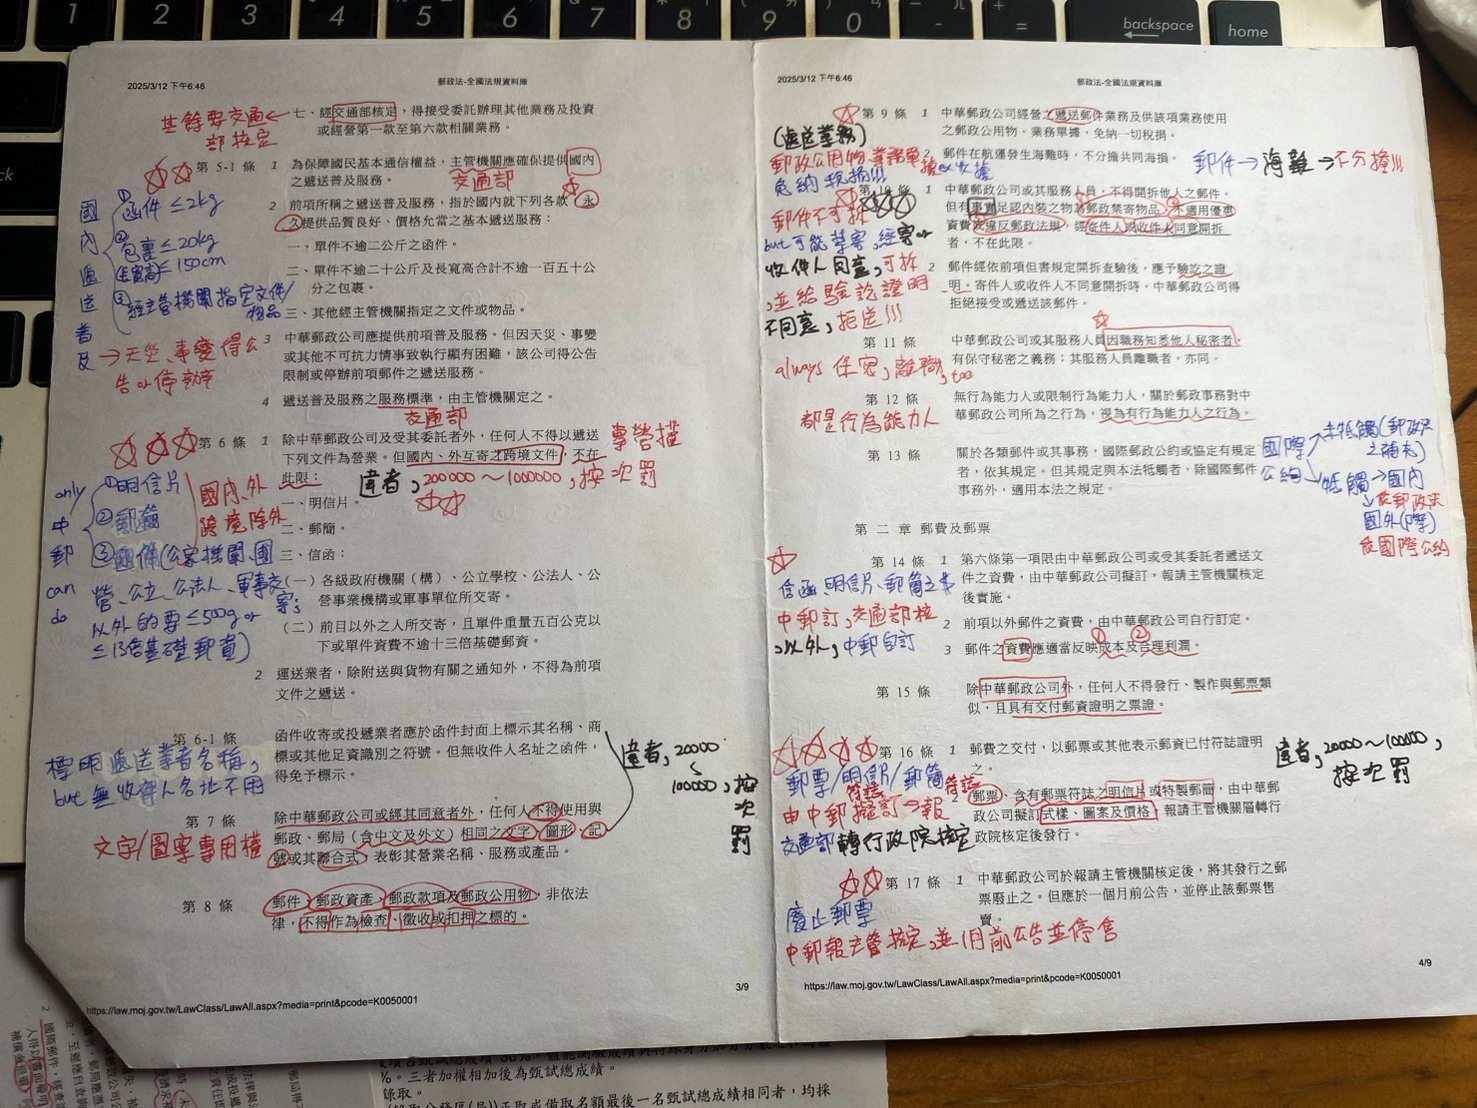 1 2 3 4 5 6 7 8 9 0 - = backspace home
2025/3/12 下午6:46
郵政法-全國法規資料庫
七、經交通部核定，得接受委託辦理其他業務及投資
或經營第一款至第六款相關業務。
其餘要交通
部核定
第 5-1 條
1 為保障國民基本通信權益，主管機關應確保提供國內
之遞送普及服務。
交通部
2 前項所稱之遞送普及服務，指於國內就下列各款，永
久提供品質良好、價格允當之基本遞送服務：
一、單件不逾二公斤之函件。
二、單件不逾二十公斤及長寬高合計不逾一百五十公
分之包裹。
三、其他經主管機關指定之文件或物品。
國內遞送普及
①函件≤2kg
②包裹≤20kg
長寬高≤150cm
③經主管機關指定文件/
物品
3 中華郵政公司應提供前項普及服務。但因天災、事變
或其他不可抗力情事致執行顯有困難，該公司得公告
限制或停辦前項郵件之遞送服務。
→天災、事變得公
告or停辦
4 遞送普及服務之服務標準，由主管機關定之。
交通部
第 6 條
1 除中華郵政公司及受其委託者外，任何人不得以遞送
下列文件為營業。但國內、外互寄之跨境文件，不在
此限：
專營權
違者，200000～1000000，按次罰
一、明信片。
二、郵簡。
三、信函：
（一）各級政府機關（構）、公立學校、公法人、公
營事業機構或軍事單位所交寄。
（二）前目以外之人所交寄，且單件重量五百公克以
下或單件資費不逾十三倍基礎郵資。
only
中
郵
can
do
①明信片
②郵簡
③函件(公家機關、國
營、公立、公法人、軍事交
寄；
以外的要≤500g or
≤13倍基礎郵資)
國內、外
跨境除外
2 運送業者，除附送與貨物有關之通知外，不得為前項
文件之遞送。
第 6-1 條
函件收寄或投遞業者應於函件封面上標示其名稱、商
標或其他足資識別之符號。但無收件人名址之函件，
得免予標示。
標明遞送業者名稱，
but無收件人名址不用
第 7 條
除中華郵政公司或經其同意者外，任何人不得使用與
郵政、郵局（含中文及外文）相同之文字、圖形、記
號或其聯合式，表彰其營業名稱、服務或產品。
文字/圖案專用權
違者，20000
～
100000，按
次
罰
第 8 條
郵件、郵政資產、郵政款項及郵政公用物，非依法
律，不得作為檢查、徵收或扣押之標的。
https://law.moj.gov.tw/LawClass/LawAll.aspx?media=print&pcode=K0050001
3/9
2025/3/12 下午6:46
郵政法-全國法規資料庫
第 9 條
1 中華郵政公司經營之遞送郵件業務及供該項業務使用
之郵政公用物、業務單據，免納一切稅捐。
2 郵件在航運發生海難時，不分擔共同海損。
(遞送業務)
郵政公用物、業務單據or收據
免納稅捐!!!
郵件→海難→不分擔!!!
第 10 條
1 中華郵政公司或其服務人員，不得開拆他人之郵件。
但有事實足認內裝之物為郵政禁寄物品、不適用優惠
資費或違反郵政法規，經寄件人或收件人同意開拆
者，不在此限。
2 郵件經依前項但書規定開拆查驗後，應予驗訖之證
明。寄件人或收件人不同意開拆時，中華郵政公司得
拒絕接受或遞送該郵件。
郵件不可拆
but可能禁寄，經寄or
收件人同意，可拆
，並給驗訖證明，
不同意，拒送!!!
第 11 條
中華郵政公司或其服務人員因職務知悉他人秘密者，
有保守秘密之義務；其服務人員離職者，亦同。
always 保密，離職，too
第 12 條
無行為能力人或限制行為能力人，關於郵政事務對中
華郵政公司所為之行為，視為有行為能力人之行為。
都是行為能力人
第 13 條
關於各類郵件或其事務，國際郵政公約或協定有規定
者，依其規定。但其規定與本法牴觸者，除國際郵件
事務外，適用本法之規定。
國際公約
未牴觸(郵政法
之補充)
牴觸→國內
↓依郵政法
國外(際)
依國際公約
第 二 章 郵費及郵票
第 14 條
1 第六條第一項限由中華郵政公司或受其委託者遞送文
件之資費，由中華郵政公司擬訂，報請主管機關核定
後實施。
2 前項以外郵件之資費，由中華郵政公司自行訂定。
3 郵件之資費應適當反映成本及合理利潤。
① ②
信函、明信片、郵簡之$
中郵訂，交通部核
，以外，中郵自訂
第 15 條
除中華郵政公司外，任何人不得發行、製作與郵票類
似，且具有交付郵資證明之票證。
第 16 條
1 郵費之交付，以郵票或其他表示郵資已付符誌證明
之。
2 郵票、含有郵票符誌之明信片或特製郵簡，由中華郵
政公司擬訂式樣、圖案及價格，報請主管機關層轉行
政院核定後發行。
郵票/明信片/郵簡
符誌 符誌
由中郵擬訂→報
交通部轉行政院核定
違者，20000～100000，
按次罰
第 17 條
1 中華郵政公司於報請主管機關核定後，將其發行之郵
票廢止之。但應於一個月前公告，並停止該郵票售
賣。
廢止郵票
中郵報主管核定，並1月前公告並停售
https://law.moj.gov.tw/LawClass/LawAll.aspx?media=print&pcode=K0050001
4/9
%。三者加權相加後為甄試總成績。
錄取。
正取或備取名額最後一名甄試總成績相同者，均採